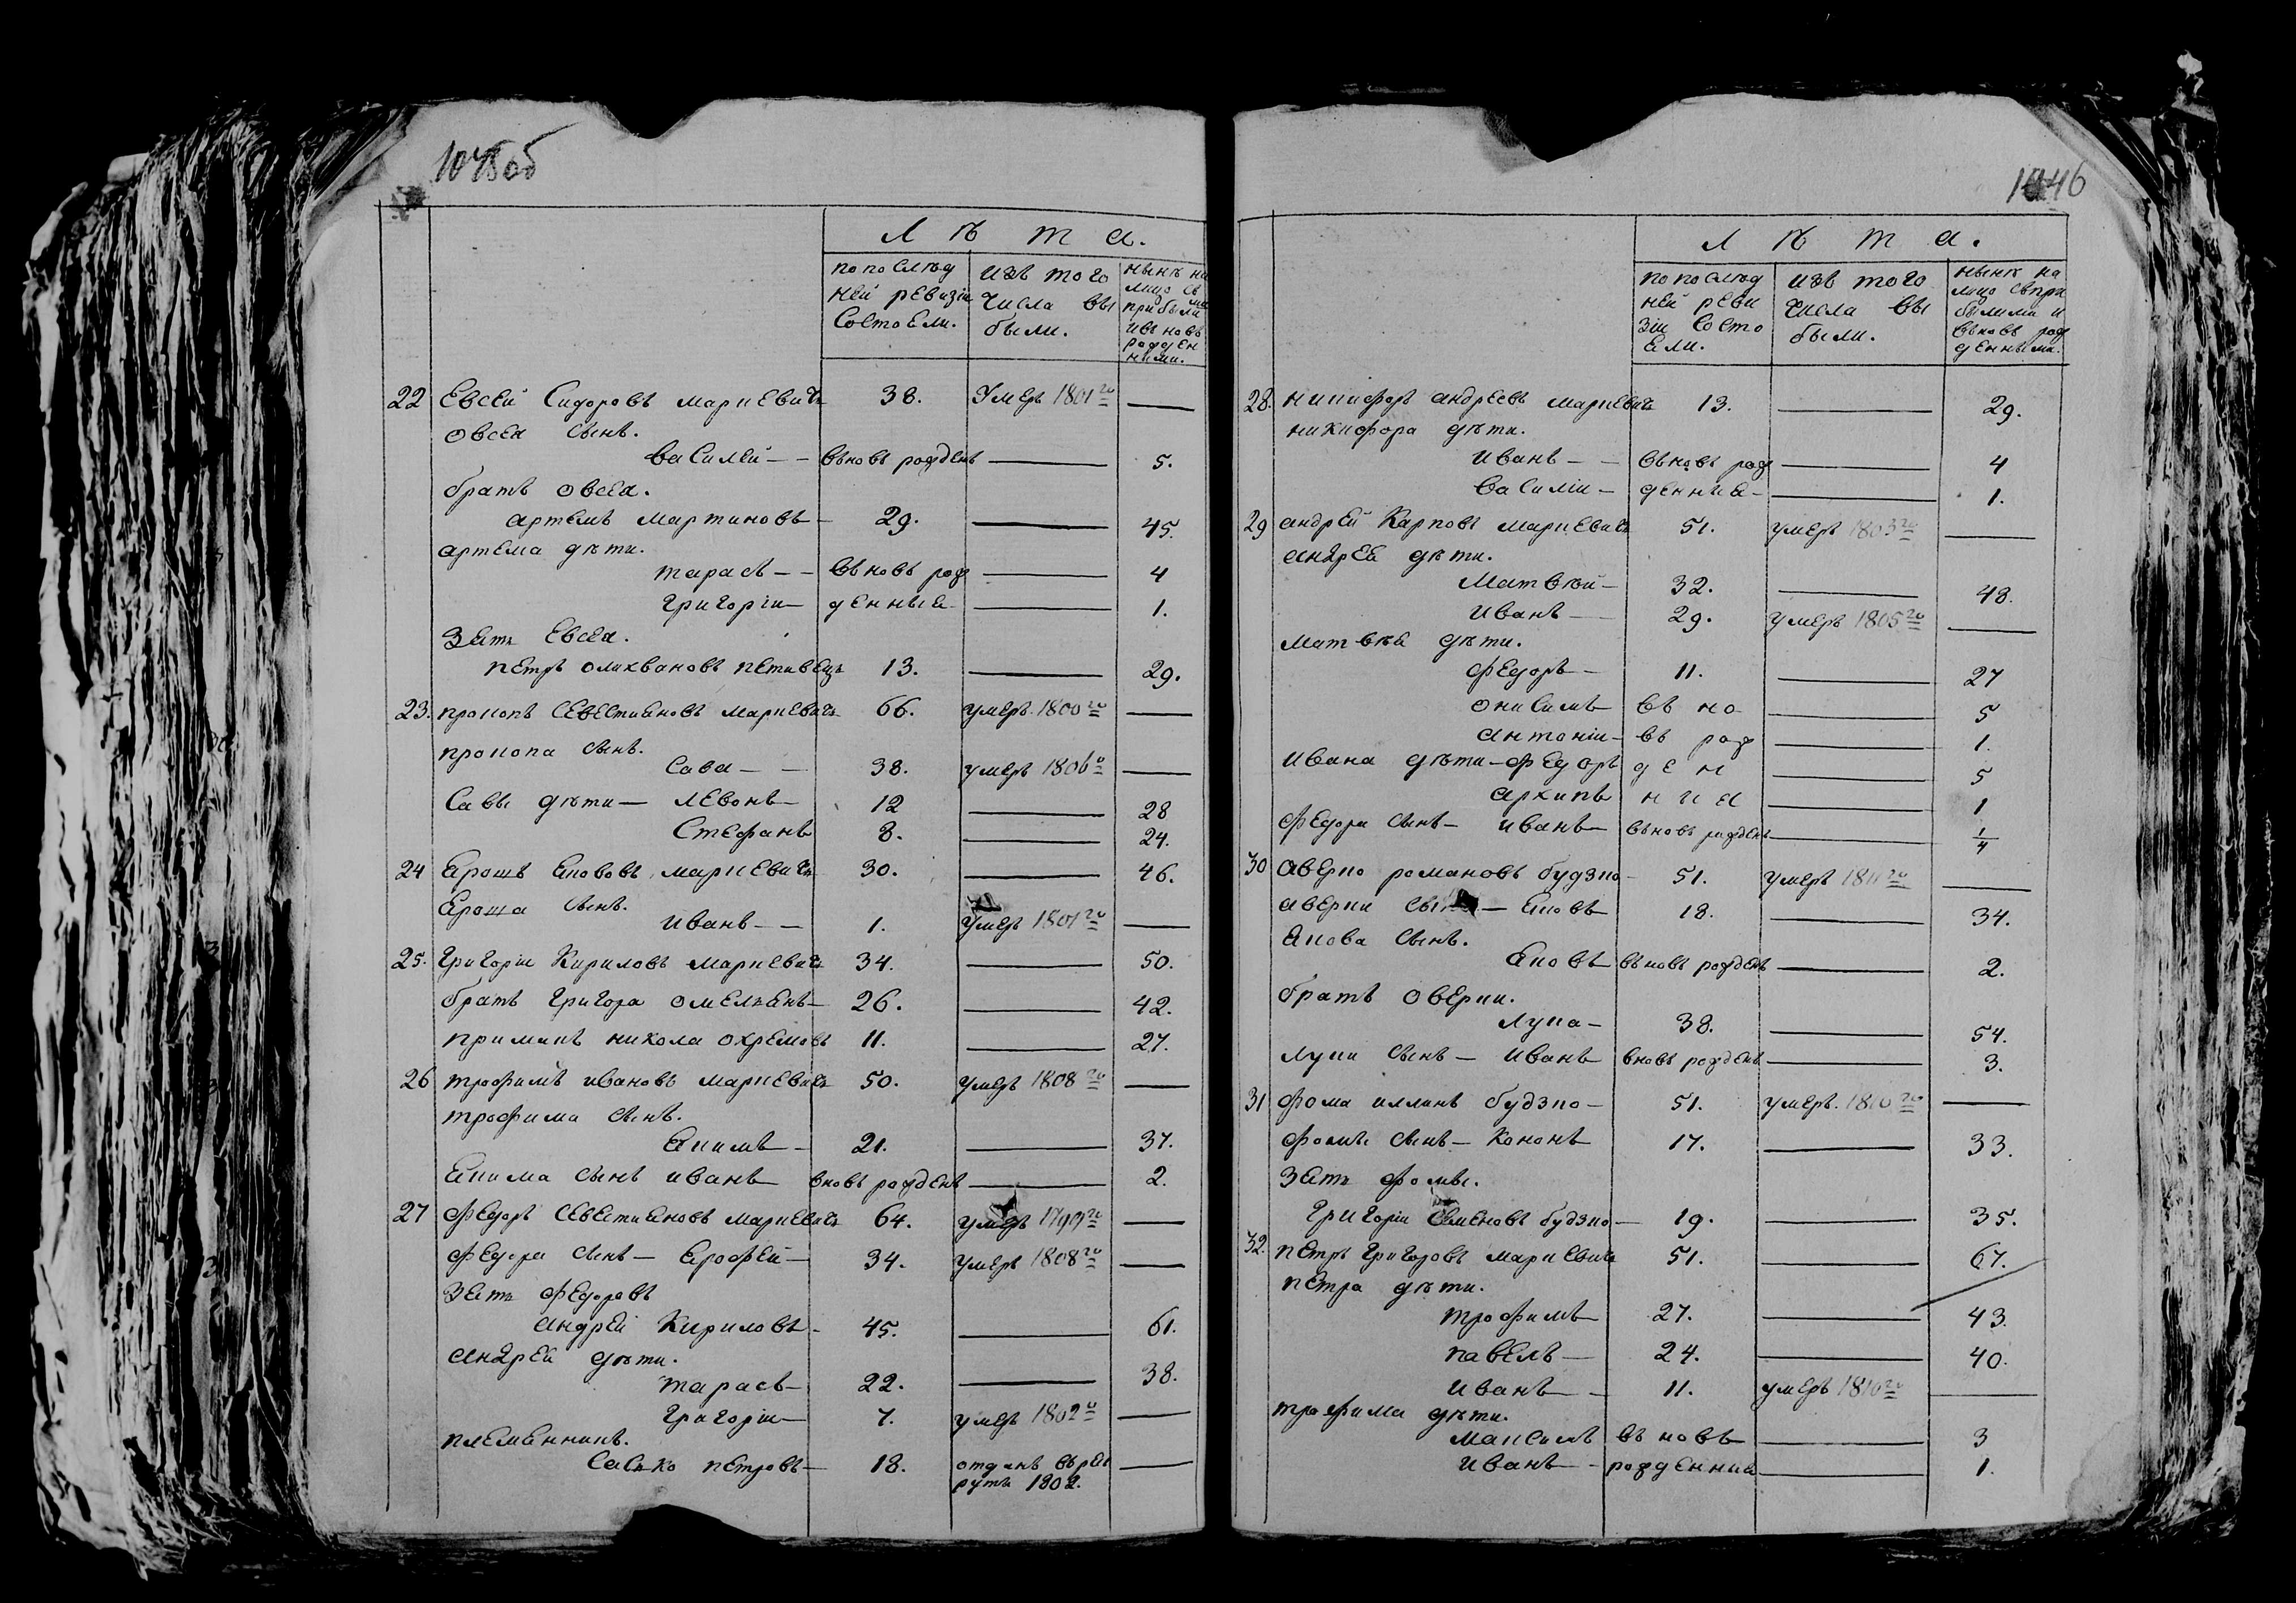 1045об
Лѣта.
попослѣд
ней ревизіи
состоели.
изъ того
числа вы
были.
нынѣ на
лицо съ
прибылыми
ивновь
рожден
ными.
22 Евсей Сидоровъ Марцевичъ 38. Умеръ 1801го —
овсея сынъ.
василей — — вьновь рожденъ — 5.
братъ овсея.
артемъ мартиновъ — 29. — 45.
артема дѣти.
тарасъ — — вьновь рож — 4
григорїи — денныя — 1.
зять Евсея.
петръ оликвановъ 13. — 29.
23. прокопъ севестияновъ марцевичъ 66. умеръ 1800го —
прокопа сынъ.
сава — — 38. умеръ 1806го —
савы дѣти — левонъ — 12 — 28
стефанъ 8. — 24.
24 ярошъ яковъ марцевичъ 30. — 46.
яроша сынъ.
иванъ — — 1. умеръ 1801го —
25. григорїи кириловъ марцевичъ 34. — 50.
братъ григора омельянъ — 26. — 42.
примакъ никола охремовъ 11. — 27.
26 трофимъ ивановъ марцевичъ 50. умеръ 1808го —
трофима сынъ.
якимъ — 21. — 37.
якима сынъ иванъ вновь рожденъ — 2.
27 федоръ севестияновъ марцевичъ 64. умеръ 1799го —
федора сынъ — ярофей — 34. умеръ 1808го —
зять федоровъ
андрей кириловъ — 45. — 61.
андрея дѣти.
тарасъ — 22. — 38.
григорїи — 7. умеръ 1802го —
племянникъ.
сасько петровъ — 18. отданъ врек —
рутъ 1802.
1046
Лѣта.
попослѣд
ней реви
зіи состо
яли.
изъ того
числа вы
были.
нынѣ на
лицо съпри
былими и
вьновь рож
денными.
28. никифоръ андреевъ марцевичъ 13. — 29.
никифора дѣти.
иванъ — — вьновь рож — 4
василїи — денния — 1.
29 андрей карповъ марцевичъ 51. умеръ 1803го —
андрея дѣти.
матвѣй — 32. — 48.
иванъ — 29. умеръ 1805го —
матвѣя дѣти.
федоръ — 11. — 27
онисимъ вь но — 5
антонїи — вь рож — 1.
ивана дѣти — федоръ ден — 5
архипъ ния — 1
федора сынъ — иванъ — вьновь рожденъ — 1/4
30 аверко романовъ будзко — 51. умеръ 1811го —
аверки сынъ — яковъ 18. — 34.
якова сынъ.
яковъ вьновь рожденъ — 2.
братъ оверки.
лука — 38. — 54.
луки сынъ — иванъ вновь рожденъ — 3.
31 фома иллинъ будзко — 51. умеръ 1810го —
фомы сынъ — кононъ 17. — 33.
зять фомы.
григорїи семеновъ будзко — 19. — 35.
32. петръ григоровъ марцевичъ 51. — 67.
петра дѣти.
трофимъ — 27. — 43.
павелъ — 24. — 40.
иванъ — 11. умеръ 1810го —
трофима дѣти.
максимъ вь новь — 3
иванъ — рожденния — 1.